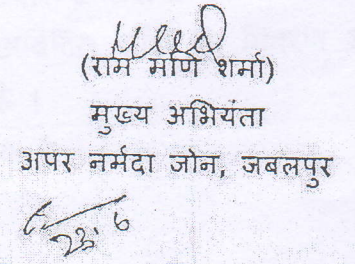 (राम मणि शर्मा)
मुख्य अभियंता
अपर नर्मदा जोन, जबलपुर